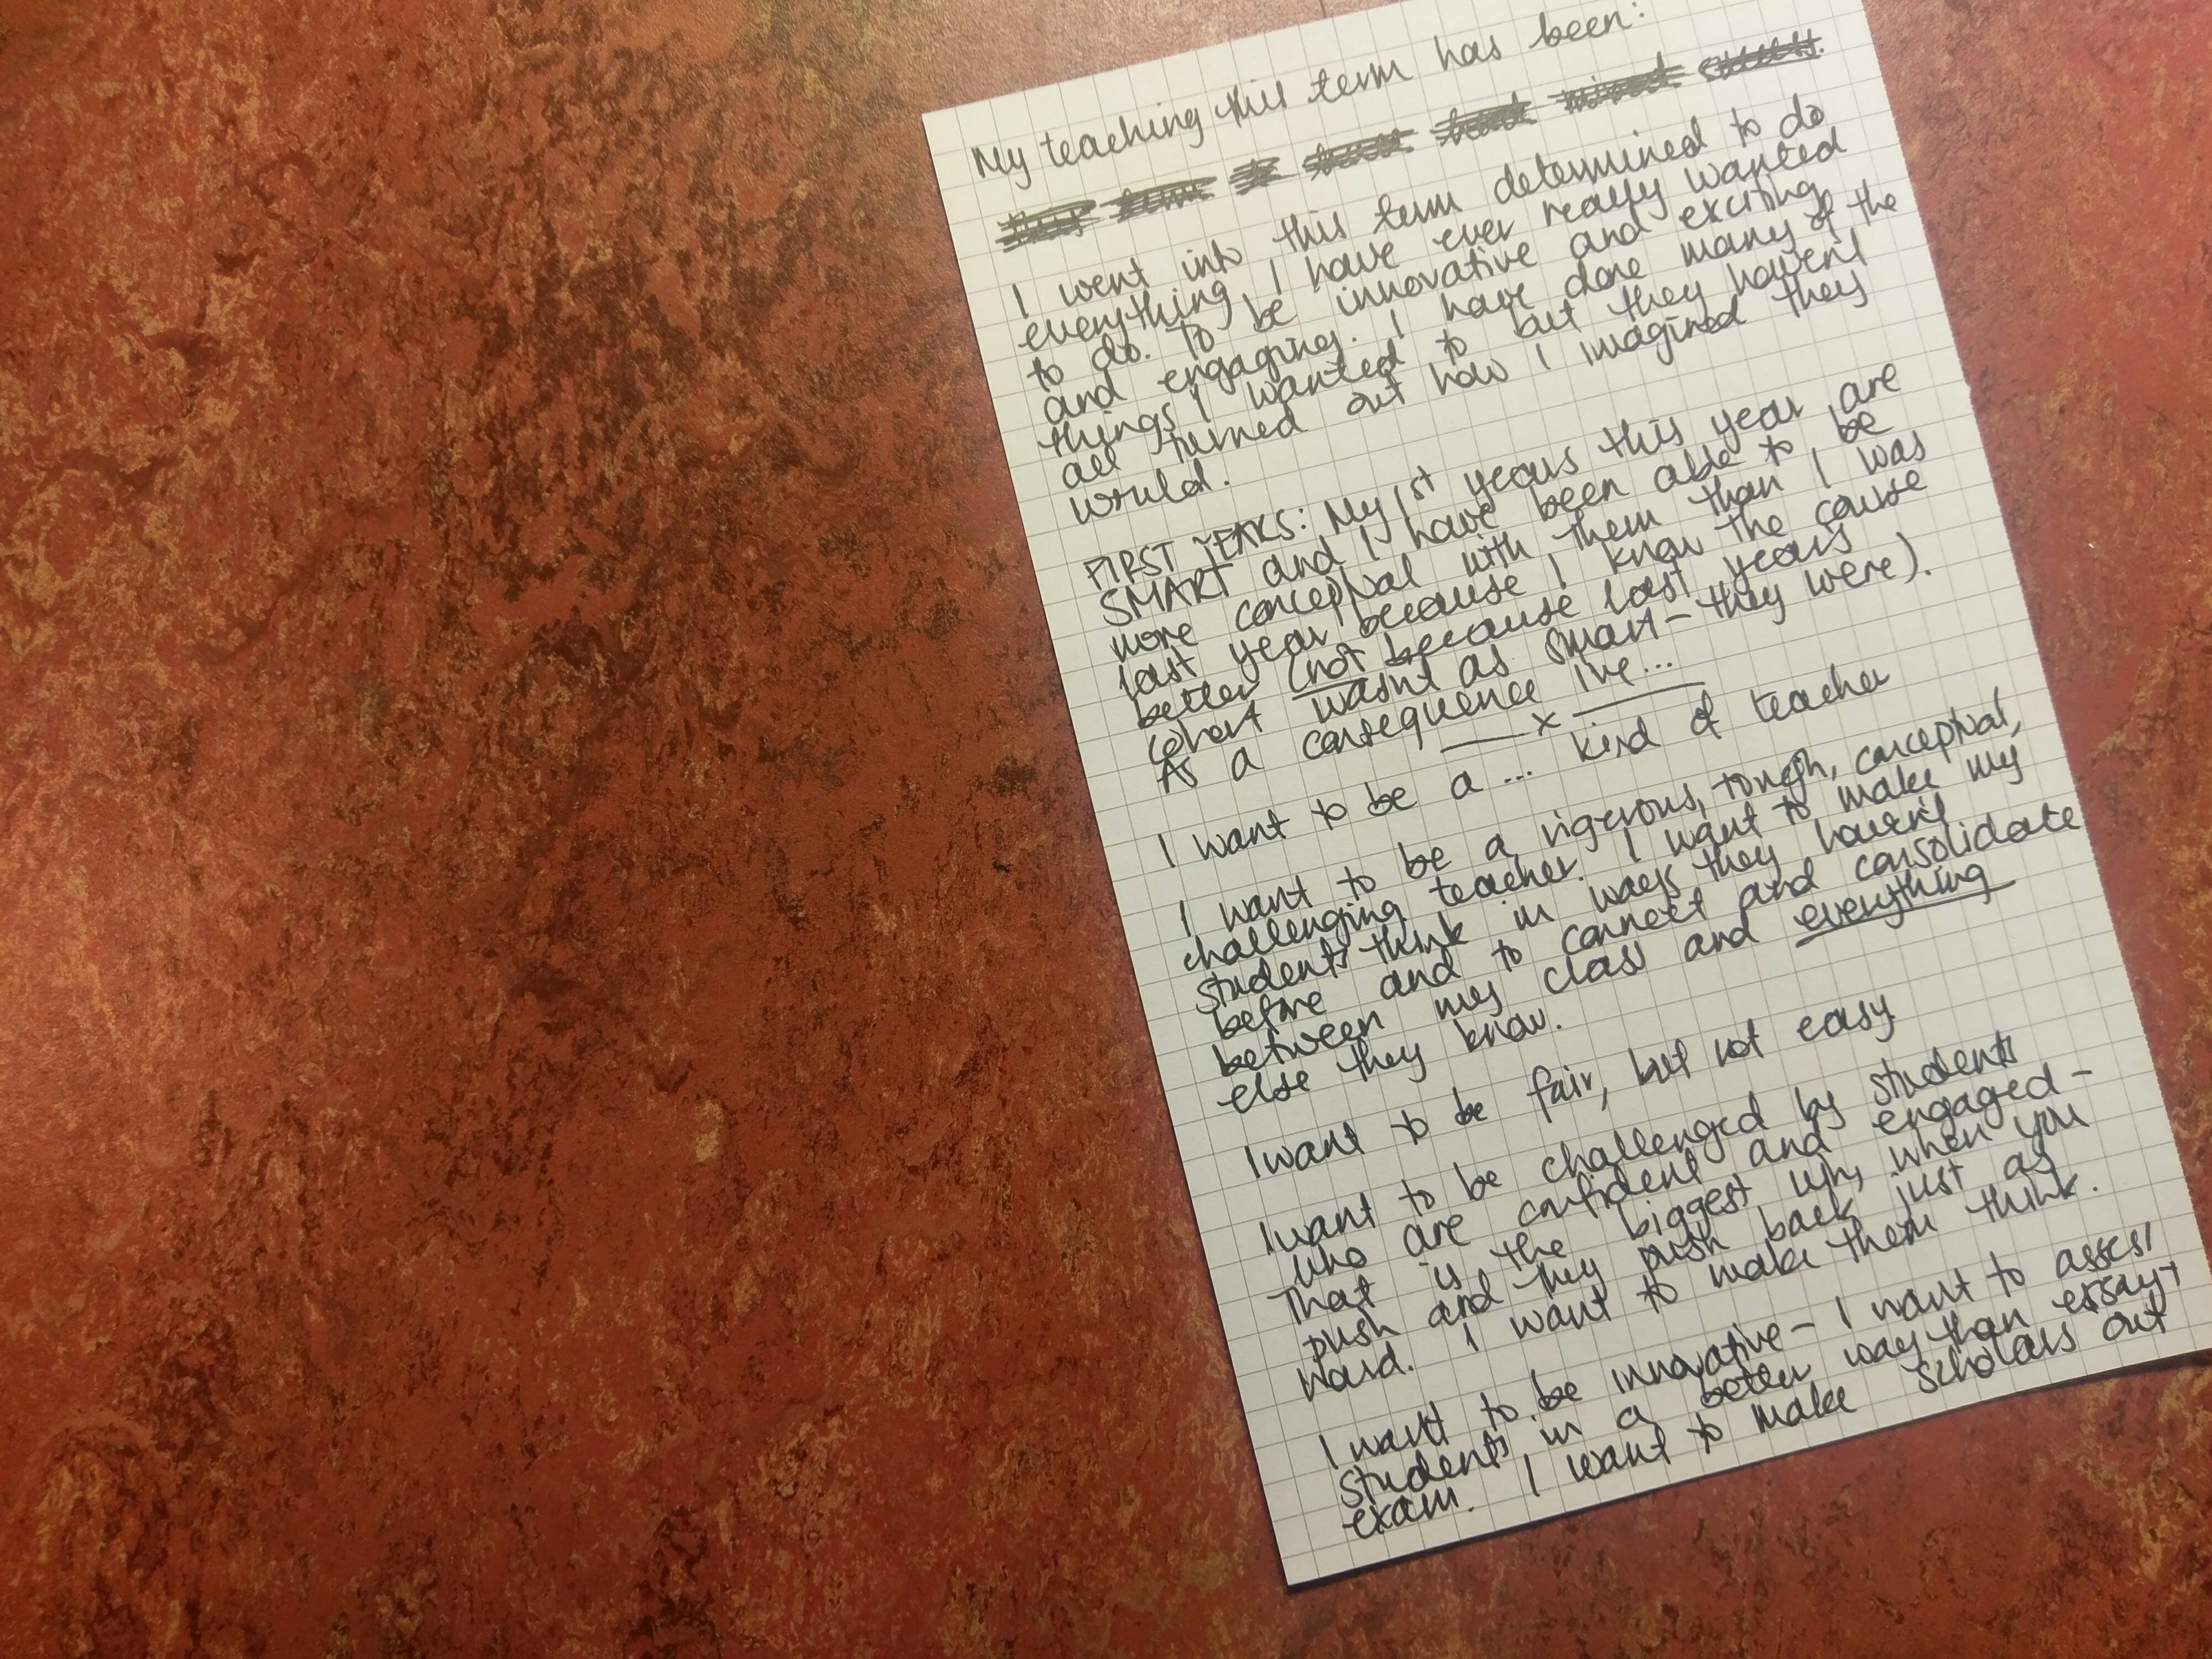 My teaching this term has been:
I went into this term determined to do
everything I have ever really wanted
to do. To be innovative and exciting
and engaging. I have done many of the
things I wanted to but they haven't
all turned out how I imagined they
would.
FIRST YEARS: My 1st years this year are
SMART and I have been able to be
more conceptual with them than I was
last year because I know the course
better (not because last years
cohort wasn't as smart - they were).
As a consequence I've...
x
I want to be a ... kind of teacher
I want to be a rigerous, tough, conceptual,
challenging teacher. I want to make my
students think in ways they haven't
before and to connect and consolidate
between my class and everything
else they know.
I want to be fair, but not easy
I want to be challenged by students
who are confident and engaged -
That is the biggest win, when you
push and they push back just as
hard. I want to make them think.
I want to be innovative - I want to assess
students in a better way than essay +
exam. I want to make scholars out